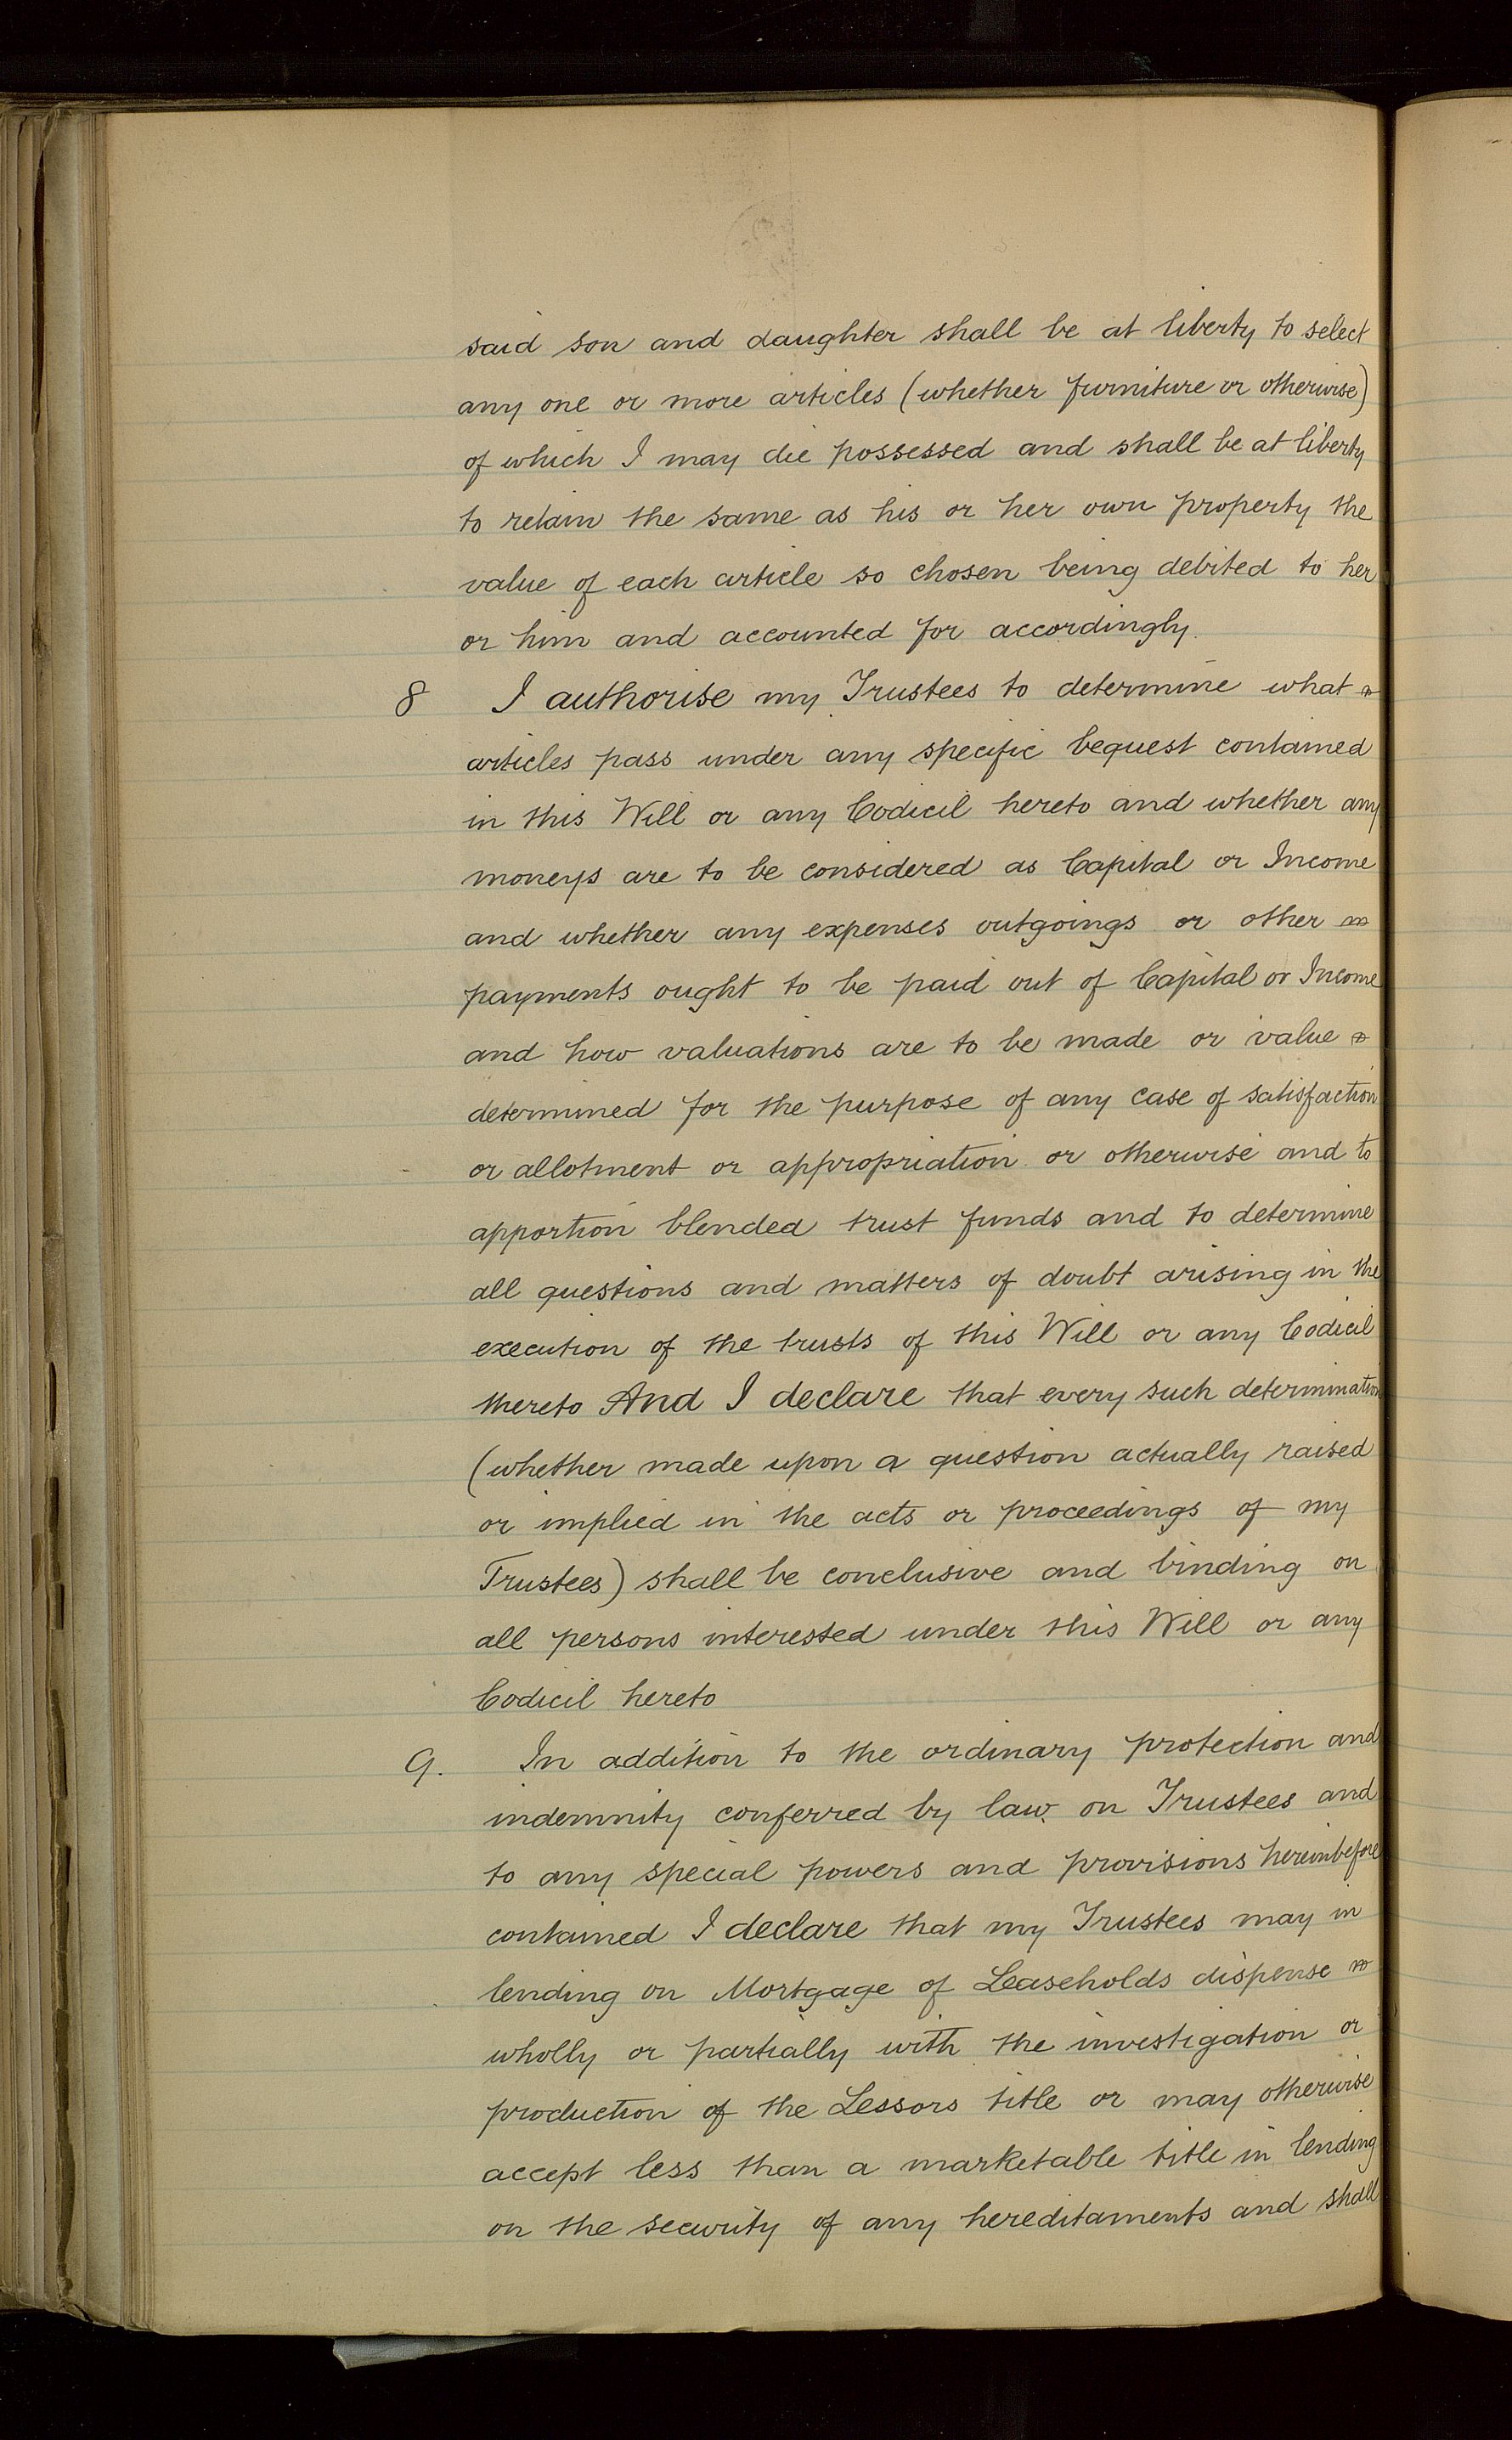 said son and daughter shall be at liberty to select
any one or more articles (whether furniture or otherwise)
of which I may die possessed and shall be at liberty
to retain the same as his or her own property the
value of each article so chosen being debited to her
or him and accounted for accordingly.
8 I authorise my Trustees to determine what
articles pass under any specific bequest contained
in this Will or any Codicil hereto and whether any
moneys are to be considered as Capital or Income
and whether any expenses outgoings or other
payments ought to be paid out of Capital or Income
and how valuations are to be made or value
determined for the purpose of any case of satisfaction
or allotment or appropriation or otherwise and to
apportion blended trust funds and to determine
all questions and matters of doubt arising in the
execution of the trusts of this Will or any Codicil
thereto And I declare that every such determination
(whether made upon a question actually raised
or implied in the acts or proceedings of my
Trustees) shall be conclusive and binding on
all persons interested under this Will or any
Codicil hereto
9. In addition to the ordinary protection and
indemnity conferred by law on Trustees and
to any special powers and provisions hereinbefore
contained I declare that my Trustees may in
lending on Mortgage of Leaseholds dispense
wholly or partially with the investigation or
production of the Lessors title or may otherwise
accept less than a marketable title in lending
on the security of any hereditaments and shall